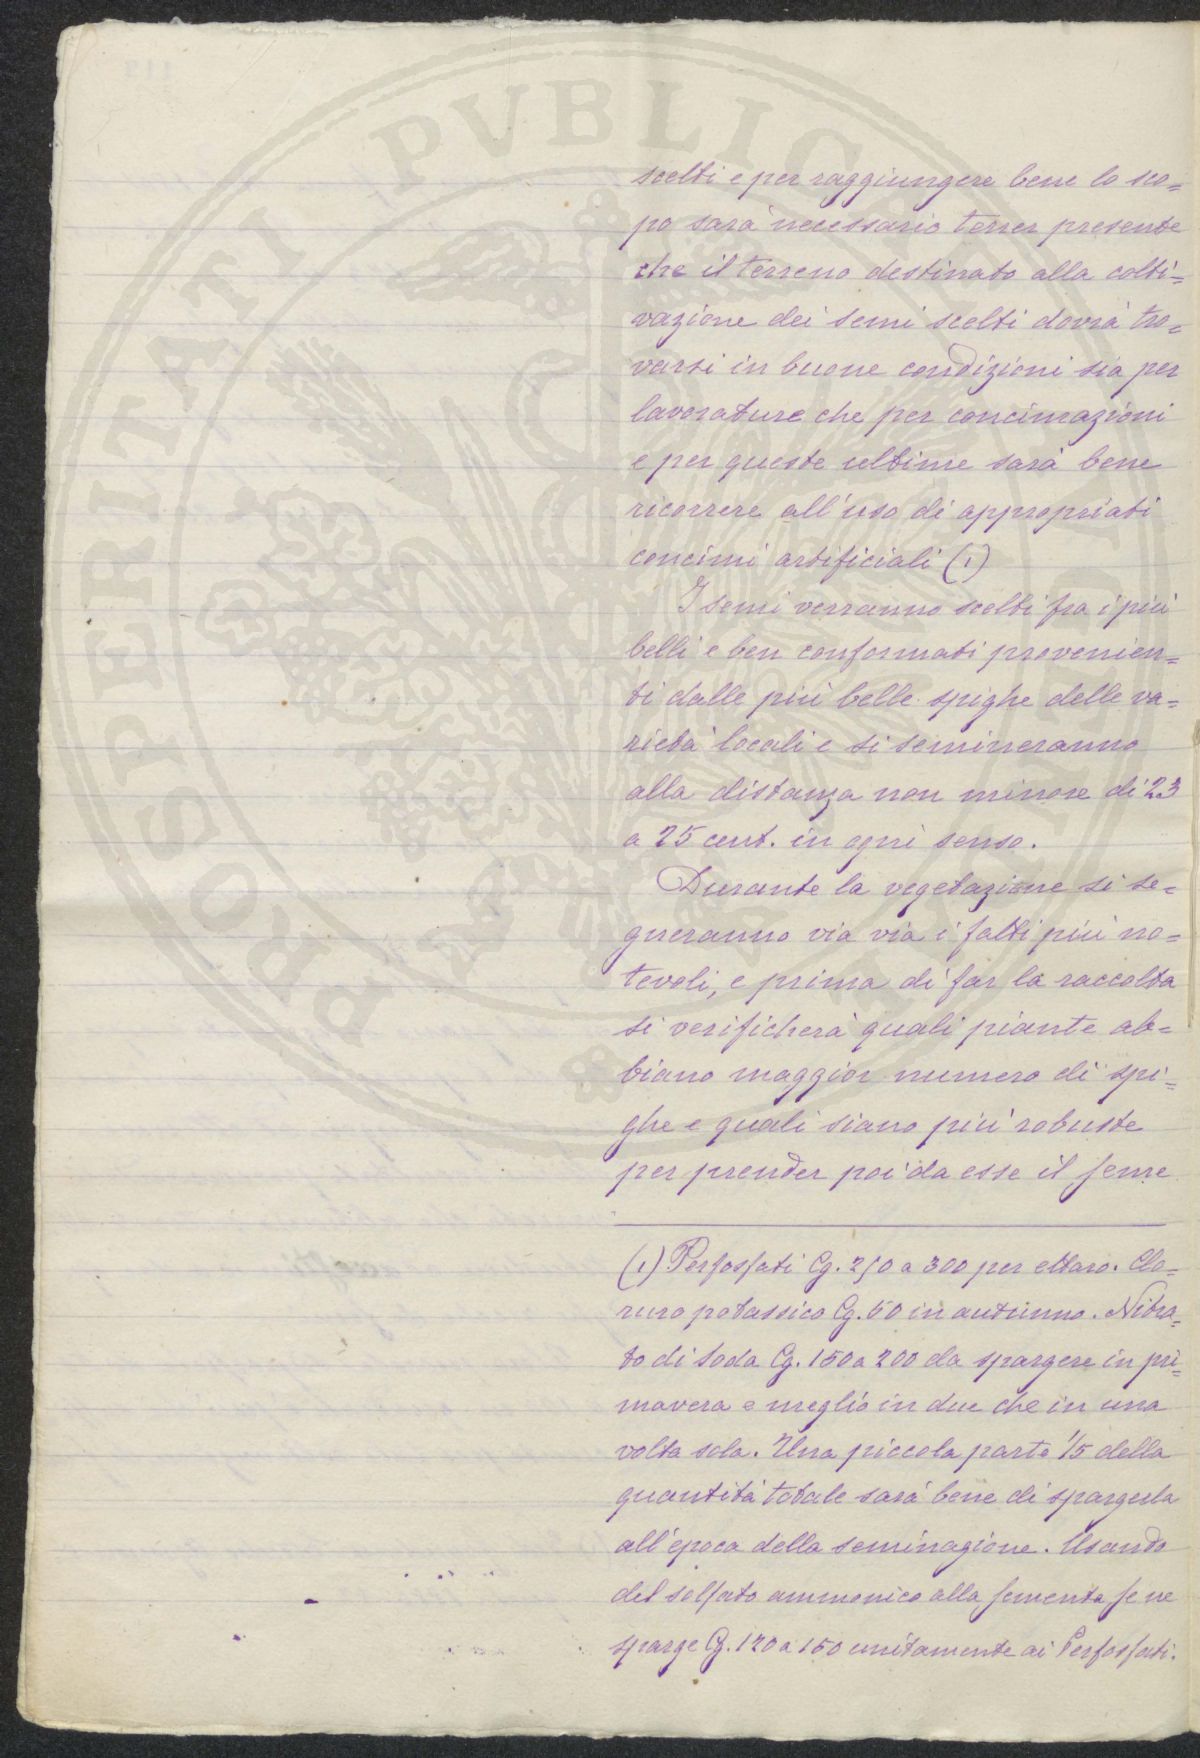 scelti e per raggiungere bene lo sco=
po sarà necessario tener presente
che il terreno destinato alla colti=
vazione dei semi scelti dovrà tro=
varsi in buone condizioni sia per
lavorature che per concimazioni
e per queste ultime sarà bene
ricorrere all'uso di appropriati
concimi artificiali (1)
I semi verranno scelti fra i più
belli e ben conformati provenien=
ti dalle più belle spighe delle va=
rietà locali e si semineranno
alla distanza non minore di 23
a 25 cent. in ogni senso.
Durante la vegetazione si se=
gueranno via via i fatti più no=
tevoli, e prima di far la raccolta
si verificherà quali piante ab=
biano maggior numero di spi=
ghe e quali siano più robuste
per prender poi da esse il seme
(1) Perfosfati Cg. 250 a 300 per ettaro. Clo=
ruro potassico Cg. 50 in autunno. Nitra=
to di soda Cg. 150 a 200 da spargere in pri=
mavera e meglio in due che in una
volta sola. Una piccola parte 1/5 della
quantità totale sarà bene di spargerla
all'epoca della seminagione. Usando
del solfato ammonico alla sementa se ne
sparge Cg. 120 a 150 unitamente ai Perfosfati.
PROSPERITATI PVBLIC